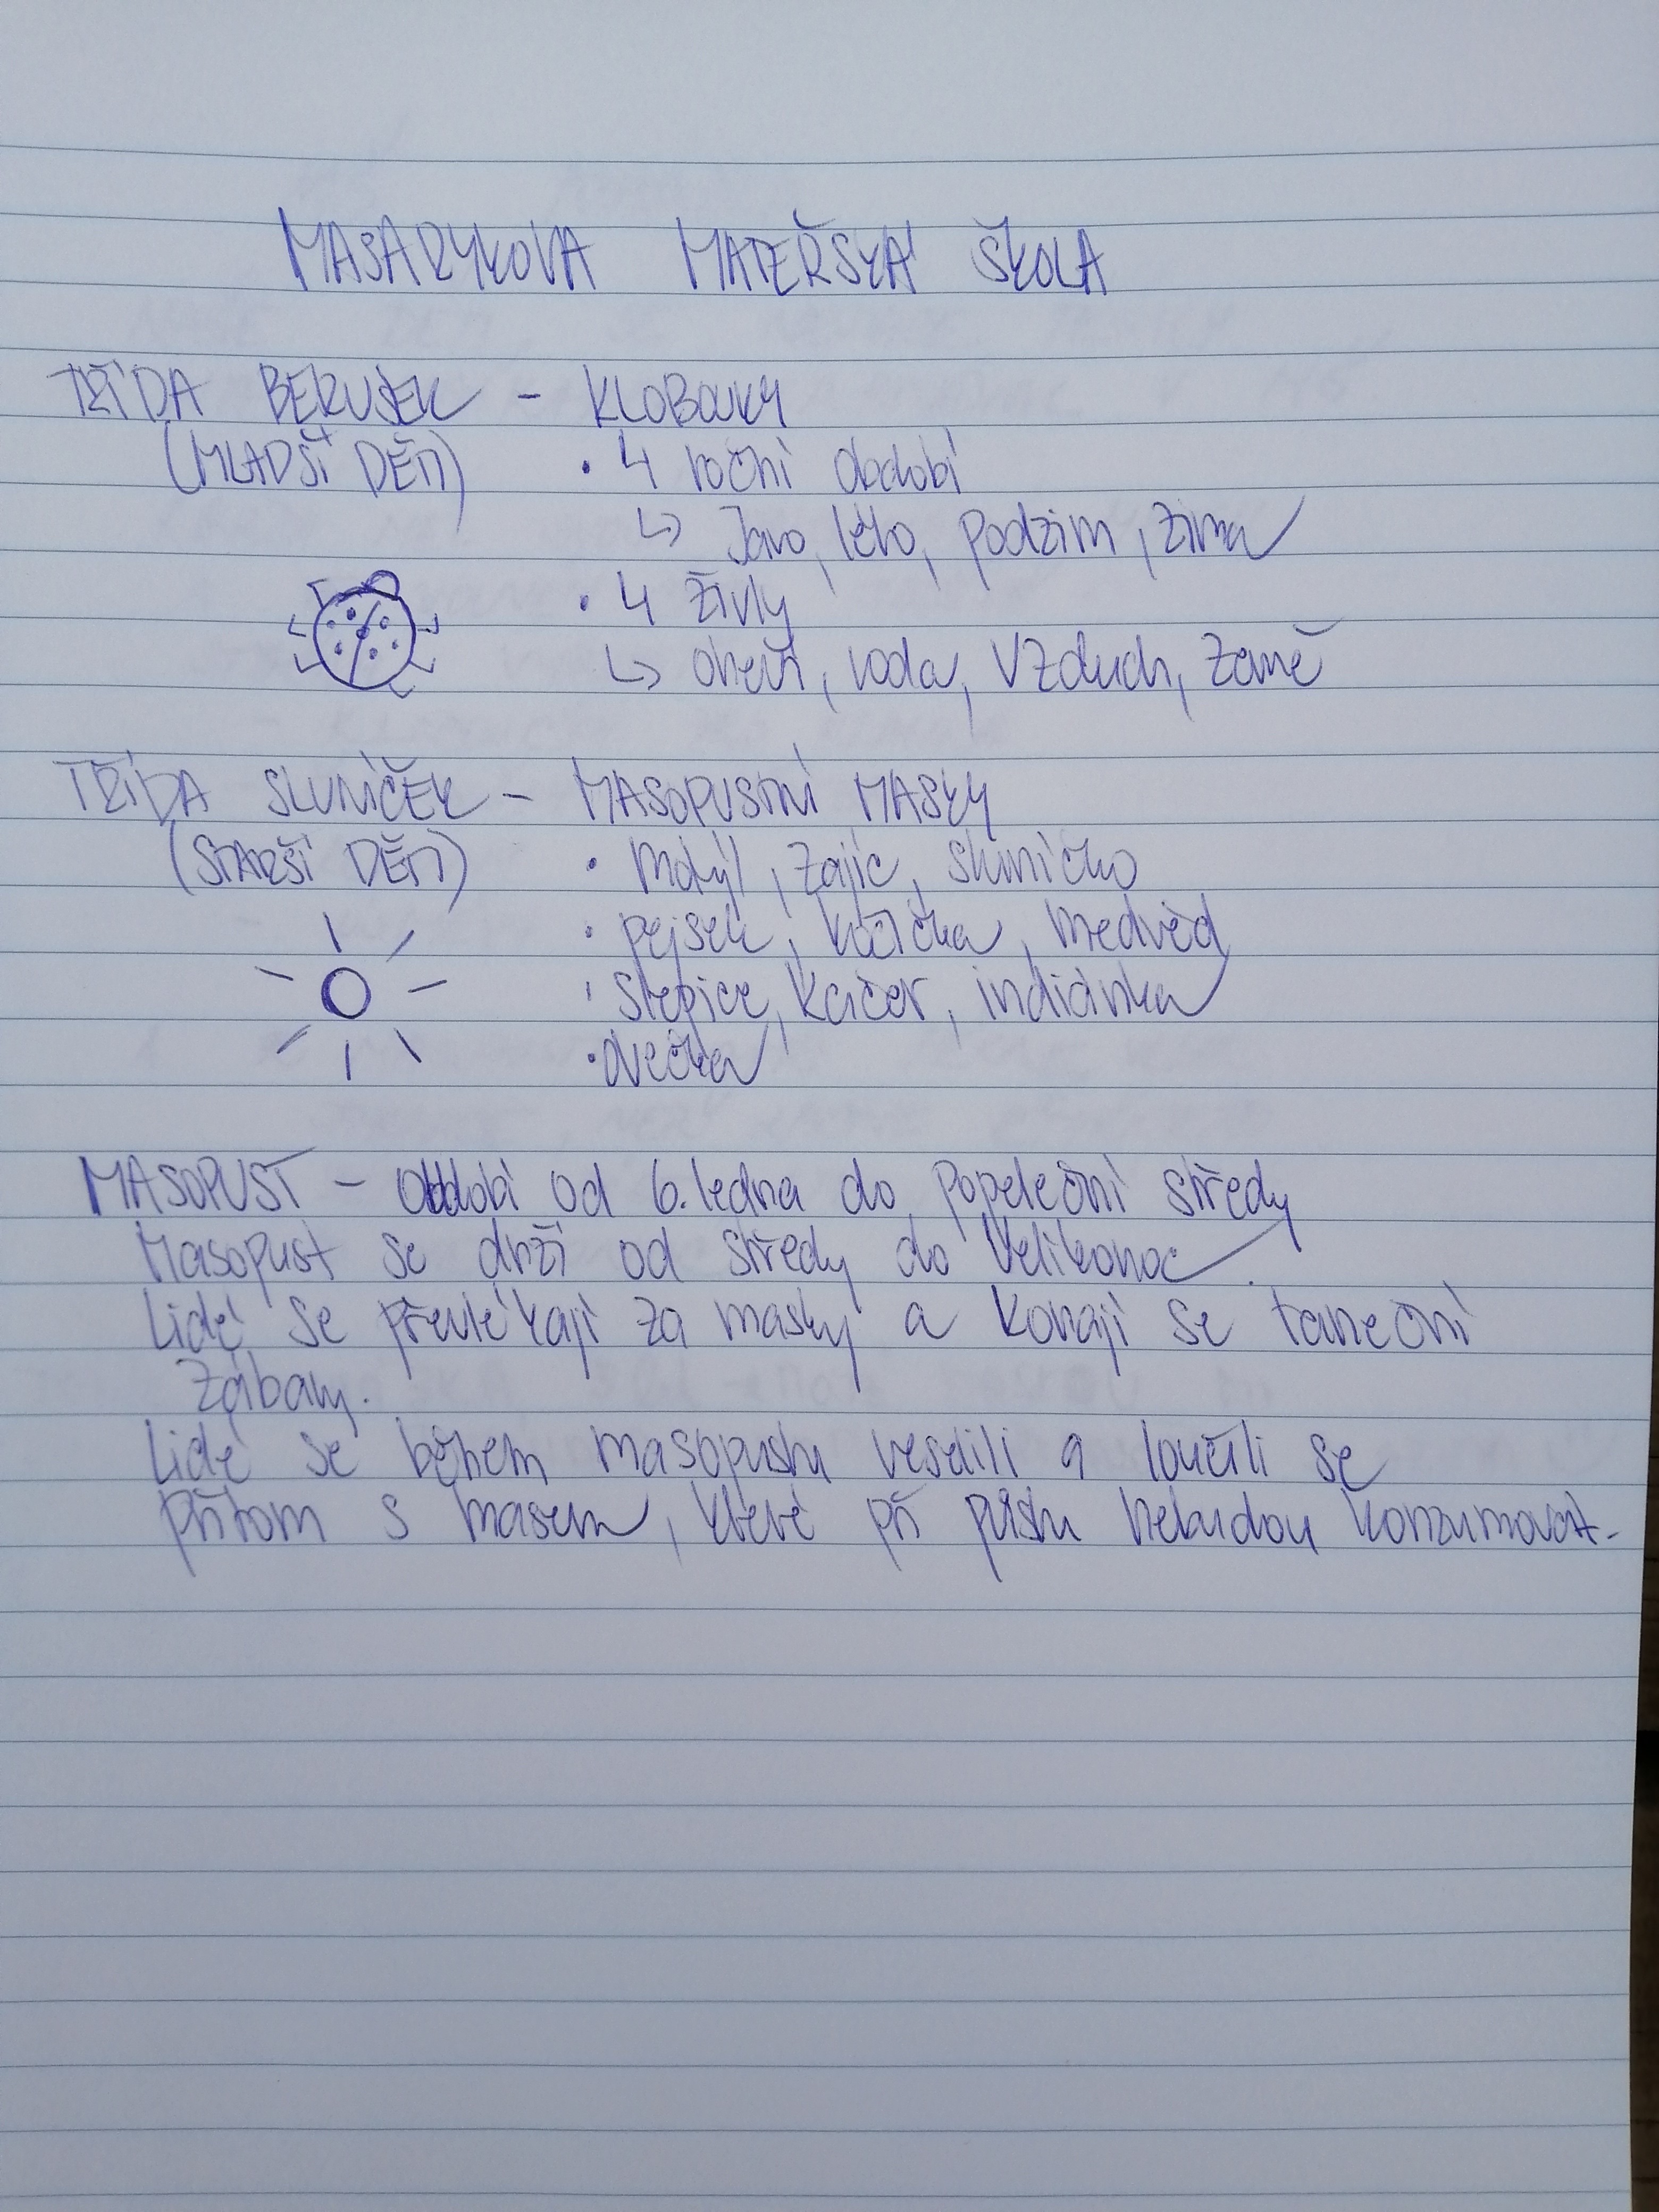 MASARYKOVA MATEŘSKÁ ŠKOLA
TŘÍDA BERUŠEK - KLOBOUKY
(MLADŠÍ DĚTI) • 4 roční období
↳ Jaro, léto, podzim, zima
• 4 živly
↳ oheň, voda, vzduch, země
TŘÍDA SLUNÍČEK - MASOPUSTNÍ MASKY
(STARŠÍ DĚTI) • motýl, zajíc, sluníčko
• pejsek, kočička, medvěd
• slepice, kačer, indiánka
• ovečka
MASOPUST - Období od 6. ledna do popeleční středy
Masopust se drží od středy do Velikonoc.
Lidé se převlékají za masky a konají se taneční
zábavy.
Lidé se během masopustu veselili a loučili se
přitom s masem, které při půstu nebudou konzumovat.